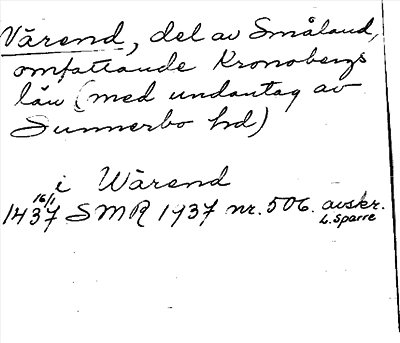 Värend, del av Småland,
omfattande Kronobergs
län (med undantag av
Sunnerbo hd)
i Wärend
16/1
1437 SMR 1937 nr. 506. avskr.
L. Sparre